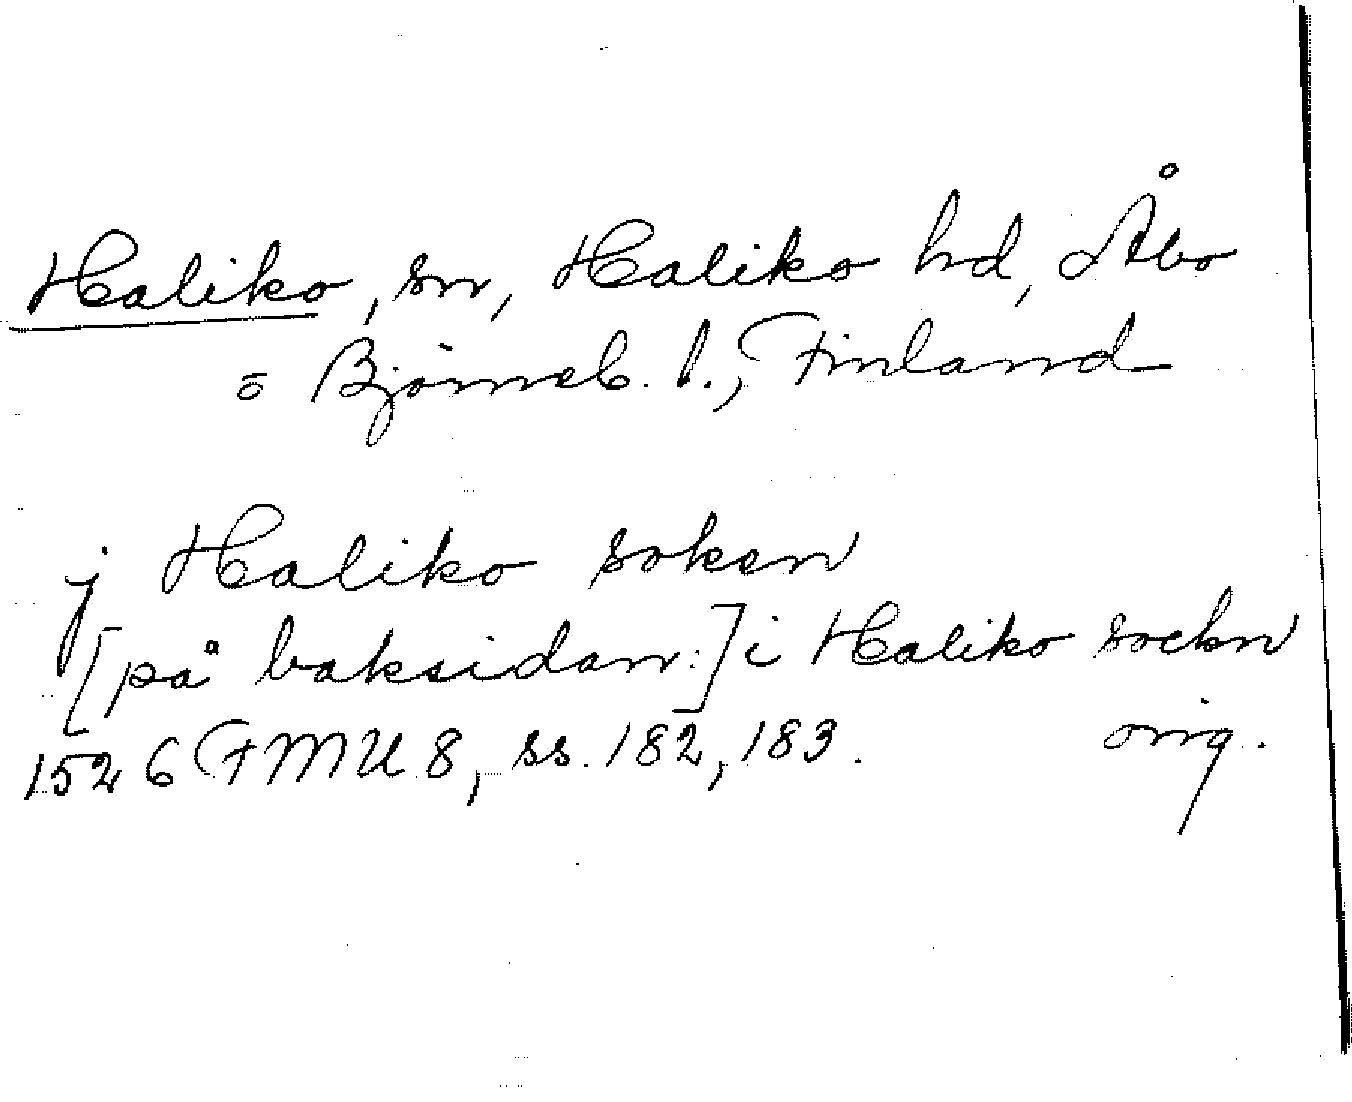 Haliko, sn, Haliko hd, Åbo
o Björneb. l., Finland
j Haliko soken
[på baksidan:] i Haliko sockn
1526 FMU 8, ss. 182, 183. orig.